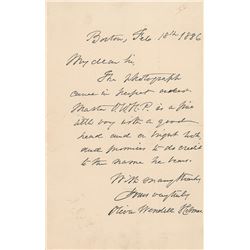 Boston, Feb. 18th 1886
My dear Sir,
The photograph
came in perfect order.
Master O.W.H.P. is a fine
little boy with a good
head and a bright look,
and promises to do credit
to the name he bears.
With many thanks,
Yours very truly,
Oliver Wendell Holmes